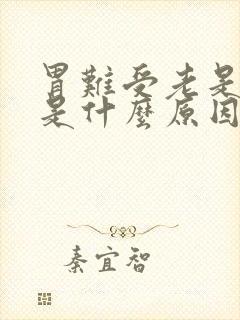 胃難受老是
是什麼原因
秦宜智